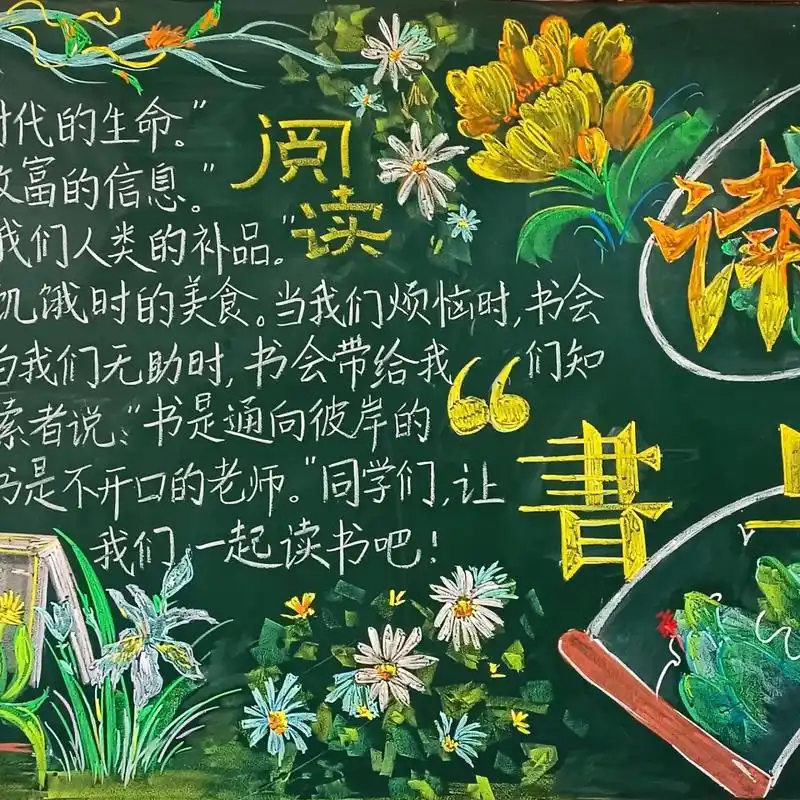 时代的生命。”
富的信息。”
我们人类的补品。”
饥饿时的美食。当我们烦恼时,书会
当我们无助时,书会带给我们知
索者说:“书是通向彼岸的
书是不开口的老师。”同学们,让
我们一起读书吧!
阅
读
读
“
書